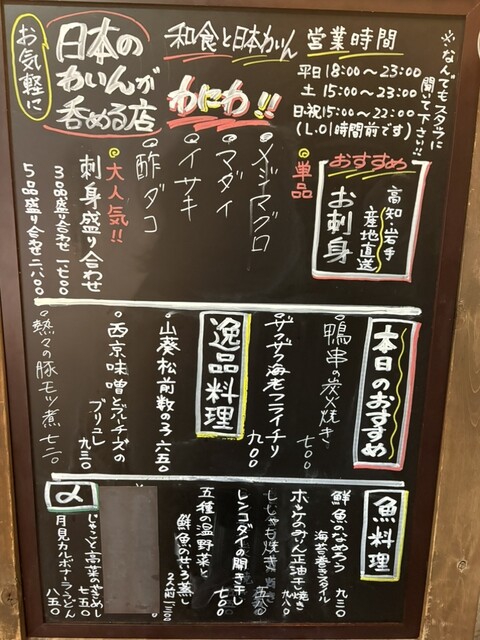 お気軽に
日本の
わいんが
呑める店
和食と日本わいん
わにわ!!
営業時間
平日 18:00〜23:00
土 15:00〜23:00
日・祝 15:00〜22:00
(L.O1時間前です)
※なんでもスタッフに
聞いて下さい!!
おすすめ
高知・岩手
産地直送
お刺身
単品
メジマグロ
マダイ
イサキ
酢ダコ
大人気!!
刺身盛り合わせ
3品盛り合わせ 一七〇〇
5品盛り合わせ 二八〇〇
本日のおすすめ
鴨串の炭火焼き 七〇〇
海老フライチリ 九〇〇
逸品料理
山葵松前数の子 六五〇
西京味噌とブルーチーズの
ブリュレ 九三〇
熱々の豚モツ煮 七二〇
魚料理
鮮魚のなめろう
海苔巻きスタイル 九三〇
ホッケのみりん正油干し焼き 九八〇
ししゃも焼き
レンコダイの開き干し 七〇〇
五種の温野菜と
鮮魚のせいろ蒸し
2人前 1,100
〆
じゃこと高菜の焼きめし 七五〇
月見カルボナーラうどん 八五〇